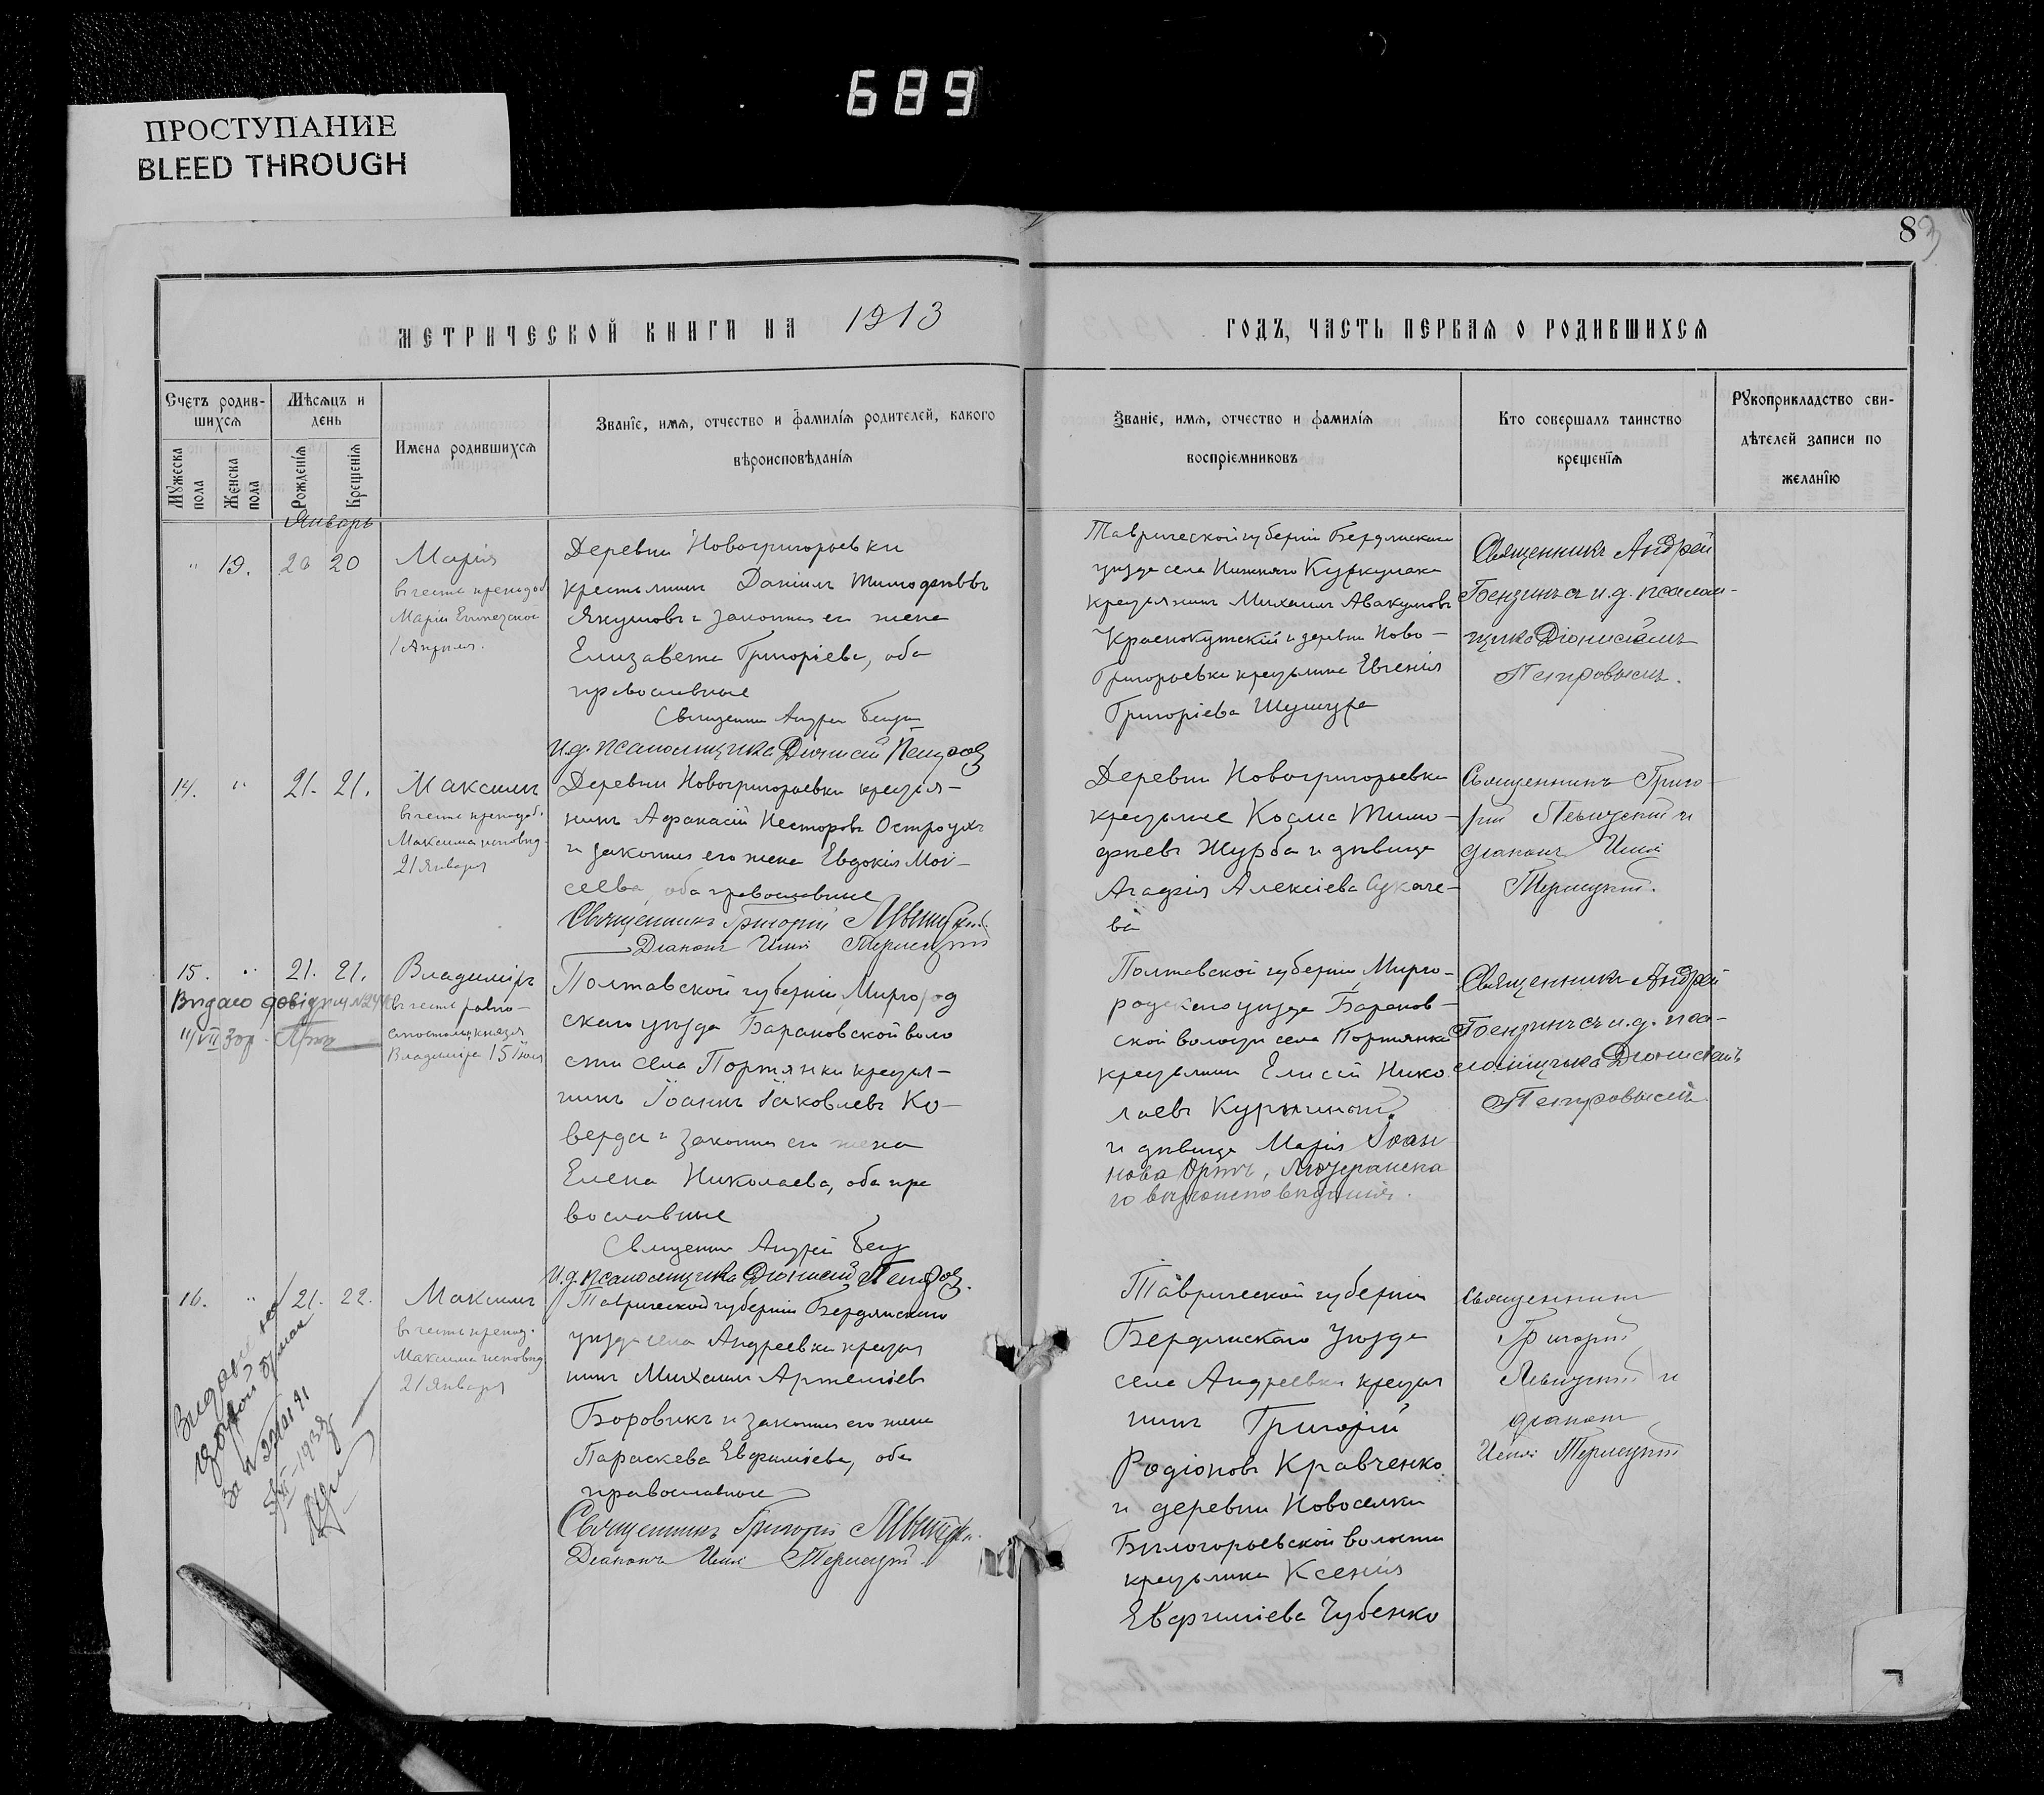 689
ПРОСТУПАНИЕ
BLEED THROUGH
83
МЕТРИЧЕСКОЙ КНИГИ НА 1913
ГОДЪ, ЧАСТЬ ПЕРВАЯ О РОДИВШИХСЯ
Счетъ родив-
шихся
Мужеска
пола
Женска
пола
Мѣсяцъ и
день
Рожденія
Крещенія
Имена родившихся
Званіе, имя, отчество и фамилія родителей, какого
вѣроисповѣданія
Званіе, имя, отчество и фамилія
воспріемниковъ
Кто совершалъ таинство
крещенія
Рукоприкладство сви-
дѣтелей записи по
желанію
Январь
" 19. 20 20
Марія
въ честь преподоб.
Маріи Египетской
1 Апреля.
Деревни Новогригорьевки
крестьянинъ Даніилъ Тимофѣевъ
Якушовъ и законная его жена
Елизавета Григоріева, оба
православные
Священникъ Андрей
И.д. псаломщика Діонисій Петровъ
Таврической губерніи Бердянскаго
уѣзда села Нижняго Куркулака
крестьянинъ Михаилъ Авакумовъ
Краснокутскій и деревни Ново-
Григорьевки крестьянка Евгенія
Григоріева
Священникъ Андрей
съ и.д. псалом-
щика Діонисіемъ
Петровымъ.
14. " 21. 21.
Максимъ
въ честь преподоб.
Максима исповѣд.
21 Января
Деревни Новогригорьевки крестья-
нинъ Афанасій Несторовъ Остроухъ
и законная его жена Евдокія Мои-
сеева, оба православные
Священникъ Григорій Левитскій
Діаконъ Илія Терлецкій
Деревни Новогригорьевки
крестьяне Косма Тимо-
фѣевъ Журба и дѣвица
Агафія Алексіева Сукаче-
ва
Священникъ Григо-
рій Левитскій и
діаконъ Илія
Терлецкій.
15. " 21. 21.
Видано довідку
Владиміръ
въ честь равно-
апостольн. князя
Владиміра 15 Іюля
Полтавской губерніи, Миргород
скаго уѣзда Барановской воло
сти села Портянки крестья-
нинъ Іоаннъ Іаковлевъ Ко-
верда и законная его жена
Елена Николаева, оба пра
вославные
Священникъ Андрей
И.д. псаломщика Діонисій Петровъ.
Полтавской губерніи, Мирго-
родскаго уѣзда Баранов-
ской волости села Портянки
крестьянинъ Елисей Нико
лаевъ
и дѣвица Марія Іоан
нова Лютеранска
го вѣроисповѣданія.
Священникъ Андрей
съ и.д. пса-
ломщика Діонисіемъ
Петровымъ.
16. " 21. 22.
Максимъ
въ честь препод.
Максима исповѣд.
21 Января
Таврической губерніи Бердянскаго
уѣзда села Андреевки крестья
нинъ Михаилъ Артеміевъ
Боровикъ и законная его жена
Параскева Евфиміева, оба
православные
Священникъ Григорій Левитскій.
Діаконъ Илія Терлецкій.
Таврической губерніи
Бердянскаго уѣзда
села Андреевки крестья
нинъ Григорій
Родіоновъ Кравченко
и деревни Новоселки
Бѣлогорьевской волости
крестьянка Ксенія
Евфиміева Чубенко
Священникъ
Григорій
Левитскій и
діаконъ
Илія Терлецкій